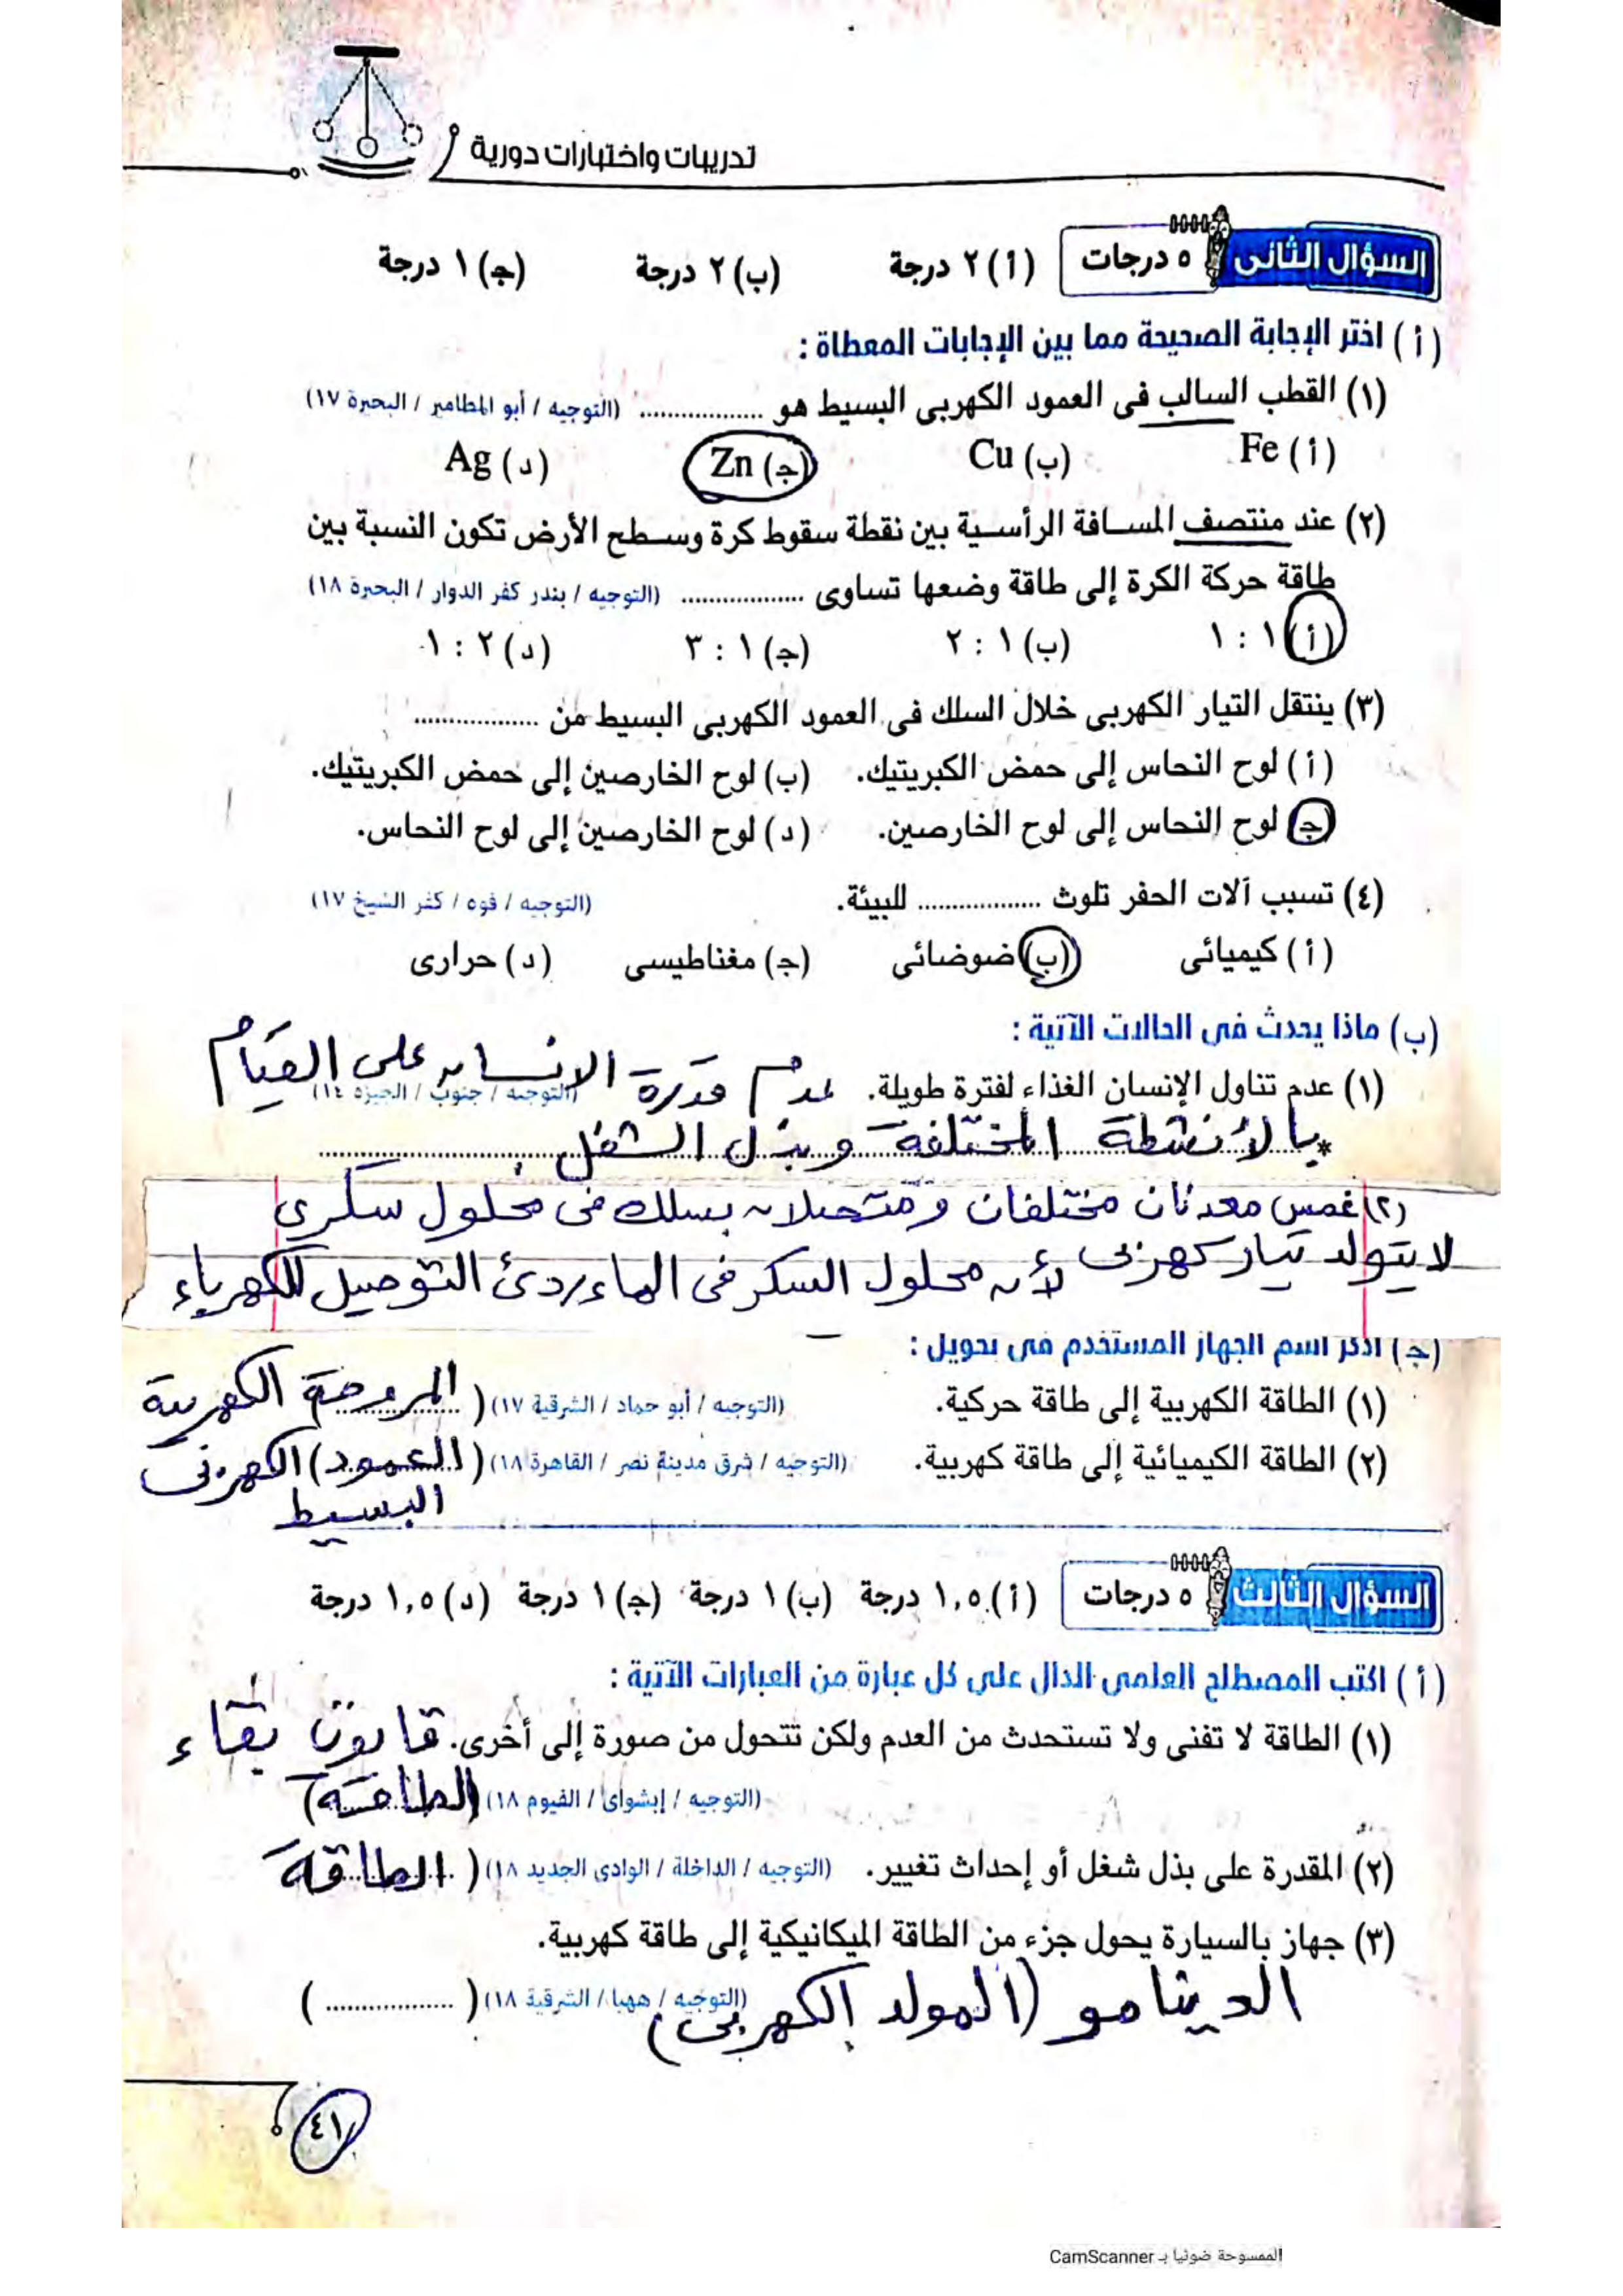 تدريبات واختبارات دورية
السؤال الثانى ٥ درجات (أ) ٢ درجة (ب) ٢ درجة (ج) ١ درجة
(أ) اختر الإجابة الصحيحة مما بين الإجابات المعطاة :
(١) القطب السالب فى العمود الكهربى البسيط هو .................. (التوجيه / أبو المطامير / البحيرة ١٧)
(أ) Fe (ب) Cu (ج) Zn (د) Ag
(٢) عند منتصف المسافة الرأسية بين نقطة سقوط كرة وسطح الأرض تكون النسبة بين
طاقة حركة الكرة إلى طاقة وضعها تساوى .................. (التوجيه / بندر كفر الدوار / البحيرة ١٨)
(أ) ١ : ١ (ب) ١ : ٢ (ج) ١ : ٣ (د) ٢ : ١
(٣) ينتقل التيار الكهربى خلال السلك فى العمود الكهربى البسيط من ..................
(أ) لوح النحاس إلى حمض الكبريتيك. (ب) لوح الخارصين إلى حمض الكبريتيك.
(ج) لوح النحاس إلى لوح الخارصين. (د) لوح الخارصين إلى لوح النحاس.
(٤) تسبب آلات الحفر تلوث .................. للبيئة. (التوجيه / فوه / كفر الشيخ ١٧)
(أ) كيميائى (ب) ضوضائى (ج) مغناطيسى (د) حرارى
(ب) ماذا يحدث فى الحالات الآتية :
(١) عدم تناول الإنسان الغذاء لفترة طويلة. عدم قدرة الإنسان على القيام (التوجيه / جنوب / الجيزة ١٤)
* بالأنشطة المختلفة وبذل الشغل.
(٢) غمس معدنان مختلفان ومتصلان بسلك فى محلول سكري
لا يتولد تيار كهربى لأن محلول السكر فى الماء ردئ التوصيل للكهرباء
(ج) اذكر اسم الجهاز المستخدم فى تحويل :
(١) الطاقة الكهربية إلى طاقة حركية. (التوجيه / أبو حماد / الشرقية ١٧) (المروحة الكهربية
(٢) الطاقة الكيميائية إلى طاقة كهربية. (التوجيه / شرق مدينة نصر / القاهرة ١٨) (العمود) الكهربى
البسيط
السؤال الثالث ٥ درجات (أ) ١,٥ درجة (ب) ١ درجة (ج) ١ درجة (د) ١,٥ درجة
(أ) اكتب المصطلح العلمى الدال على كل عبارة من العبارات الآتية :
(١) الطاقة لا تفنى ولا تستحدث من العدم ولكن تتحول من صورة إلى أخرى. قانون بقاء
(التوجيه / إبشواى / الفيوم ١٨) (الطاقة)
(٢) المقدرة على بذل شغل أو إحداث تغيير. (التوجيه / الداخلة / الوادى الجديد ١٨) (الطاقة
(٣) جهاز بالسيارة يحول جزء من الطاقة الميكانيكية إلى طاقة كهربية.
(التوجيه / ههيا / الشرقية ١٨) (..................)
الدينامو (المولد الكهربى)
٤١
الممسوحة ضوئيا بـ CamScanner